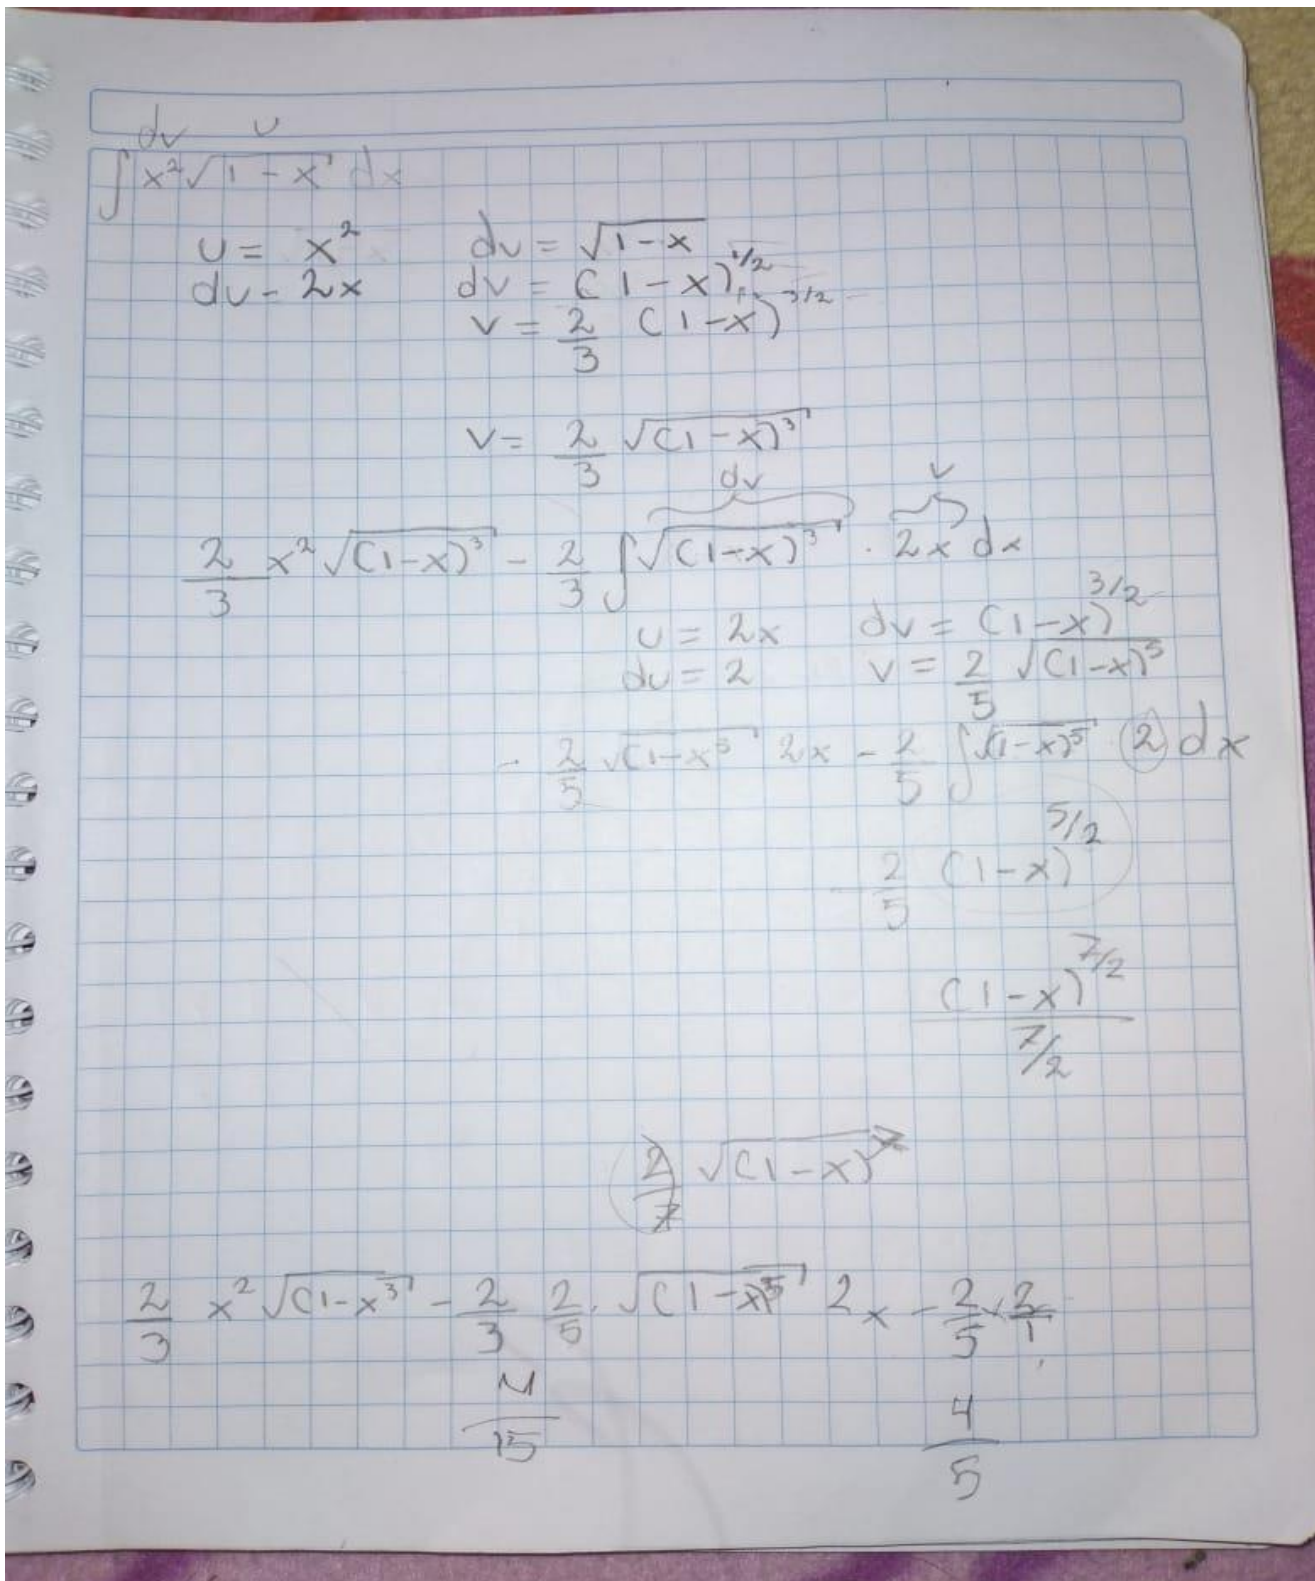 dv u
∫ x² √(1 - x) dx
u = x² dv = √(1 - x)
du - 2x dv = (1 - x)^1/2
v = 2/3 (1 - x)^3/2
v = 2/3 √((1 - x)³)
dv v
2/3 x² √((1-x)³) - 2/3 ∫ √((1-x)³) · 2x dx
u = 2x dv = (1-x)^3/2
du = 2 v = 2/5 √((1-x)⁵)
- 2/5 √(1-x⁵) 2x - 2/5 ∫ √((1-x)⁵) · 2 dx
- 2/5 (1-x)^5/2
(1-x)^7/2 / 7/2
2/7 √((1-x)⁷)
2/3 x² √((1-x³) - 2/3 2/5 · √((1-x)⁵) 2x - 2/5 × 2/1
4/15 4/5